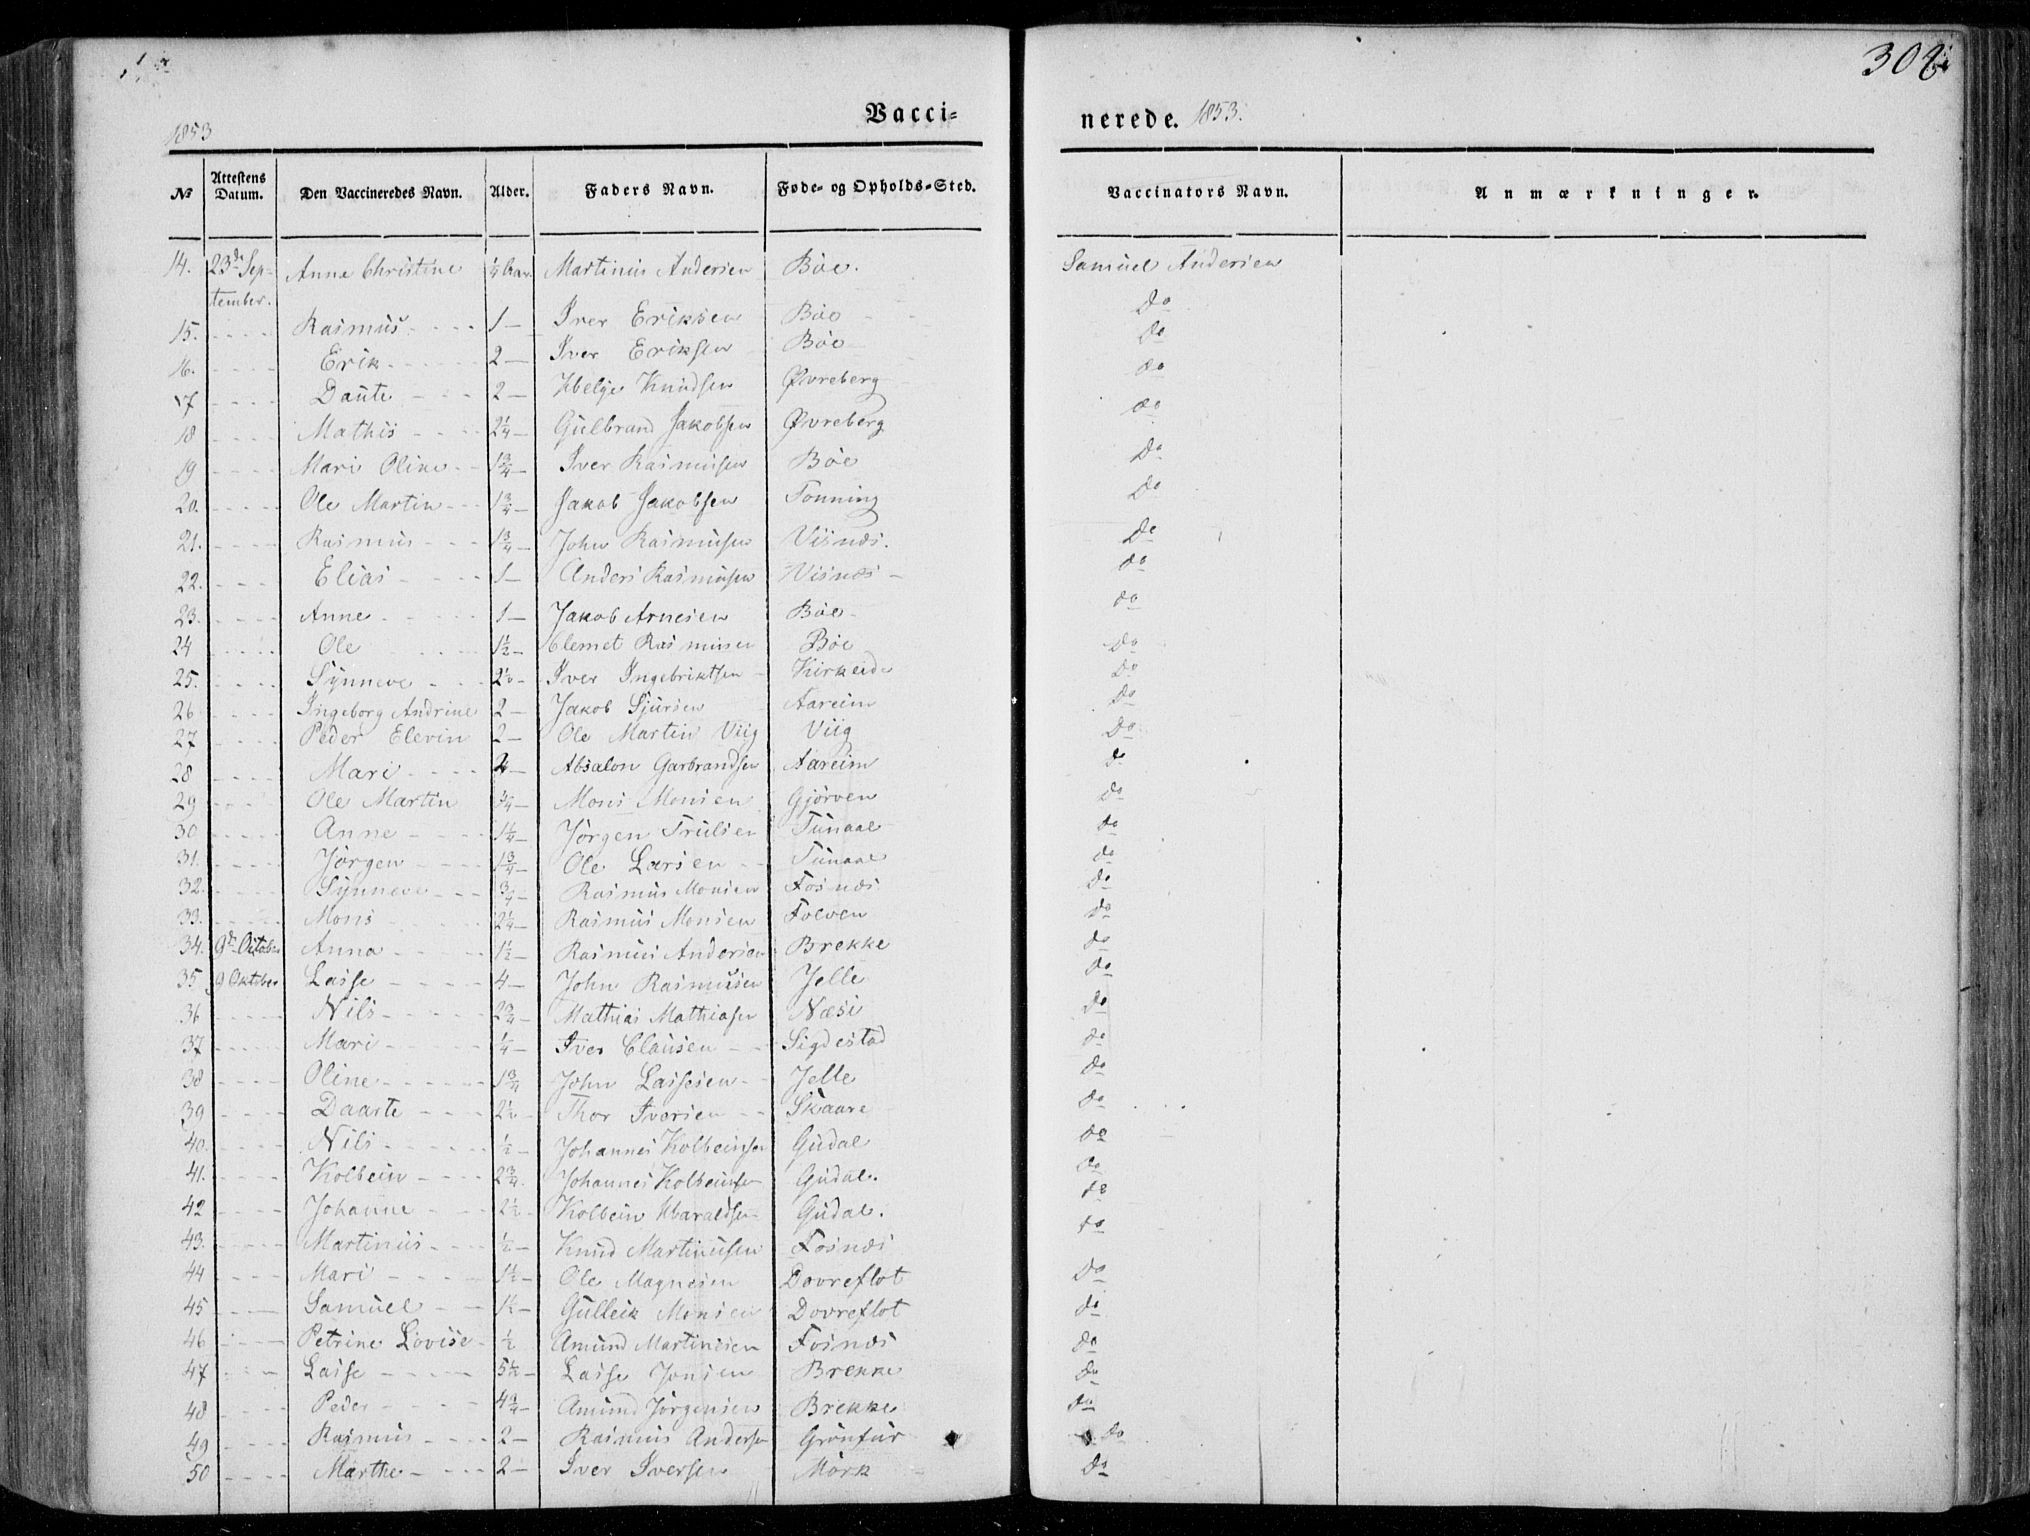 308
Vacci-
nerede. 1853.
1853
№ Attestens Datum. Den Vaccineredes Navn. Alder. Faders Navn. Føde- og Opholds-Sted. Vaccinators Navn. Anmærkninger.
14. 23de Sep- Anna Christine ¼ Aar. Martinus Andersen Böe. Samuel Andersen
tember.
15. Rasmus 1 Iver Eriksen Böe Do
16. Erik 2 Iver Eriksen Böe Do
17 Daute 2 Helge Knudsen Øvreberg do
18 Mathis 2¼ Gulbrand Jakobsen Øvreberg do
19 Mari Oline 1¾ Iver Rasmusen Böe Do
20. Ole Martin 1¾ Jakob Jakobsen Tonning Do
21. Rasmus 1¾ John Rasmusen Viisnæs. Do
22. Elias 1 Anders Rasmusen Visnæs do
23. Anne 1 Jakob Arnesen Böe do
24 Ole 1½ Clemet Rasmusen Böe Do
25. Synneve 2½ Iver Ingebriktsen Kirkeide Do
26 Ingeborg Andrine 2 Jakob Sjursen Aareim Do
27 Peder Elevin 2 Ole Martin Viig Viig Do
28 Mari 2 Absalon Garbrandsen Aareim do
29 Ole Martin ¼ Mons Monsen Gjörven Do
30 Anne 1¼ Jörgen Trulsen Tunaal do
31. Jörgen 1¾ Ole Larsen Tunaal do
32. Synneve ¾ Rasmus Monsen Fosnæs do
33. Mons 2¼ Rasmus Monsen Folven do
34. 9de October Anna 1½ Rasmus Andersen Brekke do
35 9 Oktober Lasse 4 John Rasmusen Jelle do
36 Nils 2¾ Mathias Mathiasen Næsi Do
37 Mari ¼ Iver Clausen Sigdestad do
38 Oline 1¾ John Lassesen Jelle do
39 Daarte 2½ Thor Iversen Skaare do
40. Nils ½ Johannes Kolbeinsen Gudal do
41. Kolbein 2¾ Johannes Kolbeinsen Gudal. do
42 Johanne 2½ Kolbein Haraldsen Gudal. do
43. Martinus ½ Knud Martinusen Fosnæs do
44 Mari 1½ Ole Magnesen Dovreflot Do
45 Samuel 1½ Gulleik Monsen Dovreflot do
46 Petrine Lovise ½ Amund Martinesen Fosnæs do
47 Lasse 5½ Lasse Jonsen Brekke do
48 Peder 4¾ Amund Jörgensen Brekke do
49 Rasmus 2 Rasmus Andersen Grönfur Do
50 Marthe 2 Iver Iversen Mörk Do